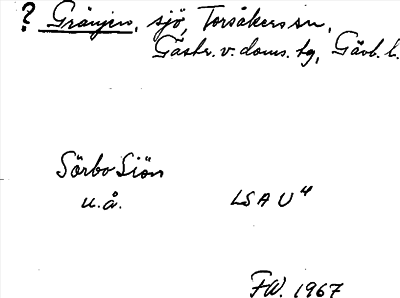 ? Grängen, sjö, Torsåkers sn,
Gästr. v. doms. tg, Gävl. l.
Sörbo Siön
u.å. LSA U 4
FW. 1967